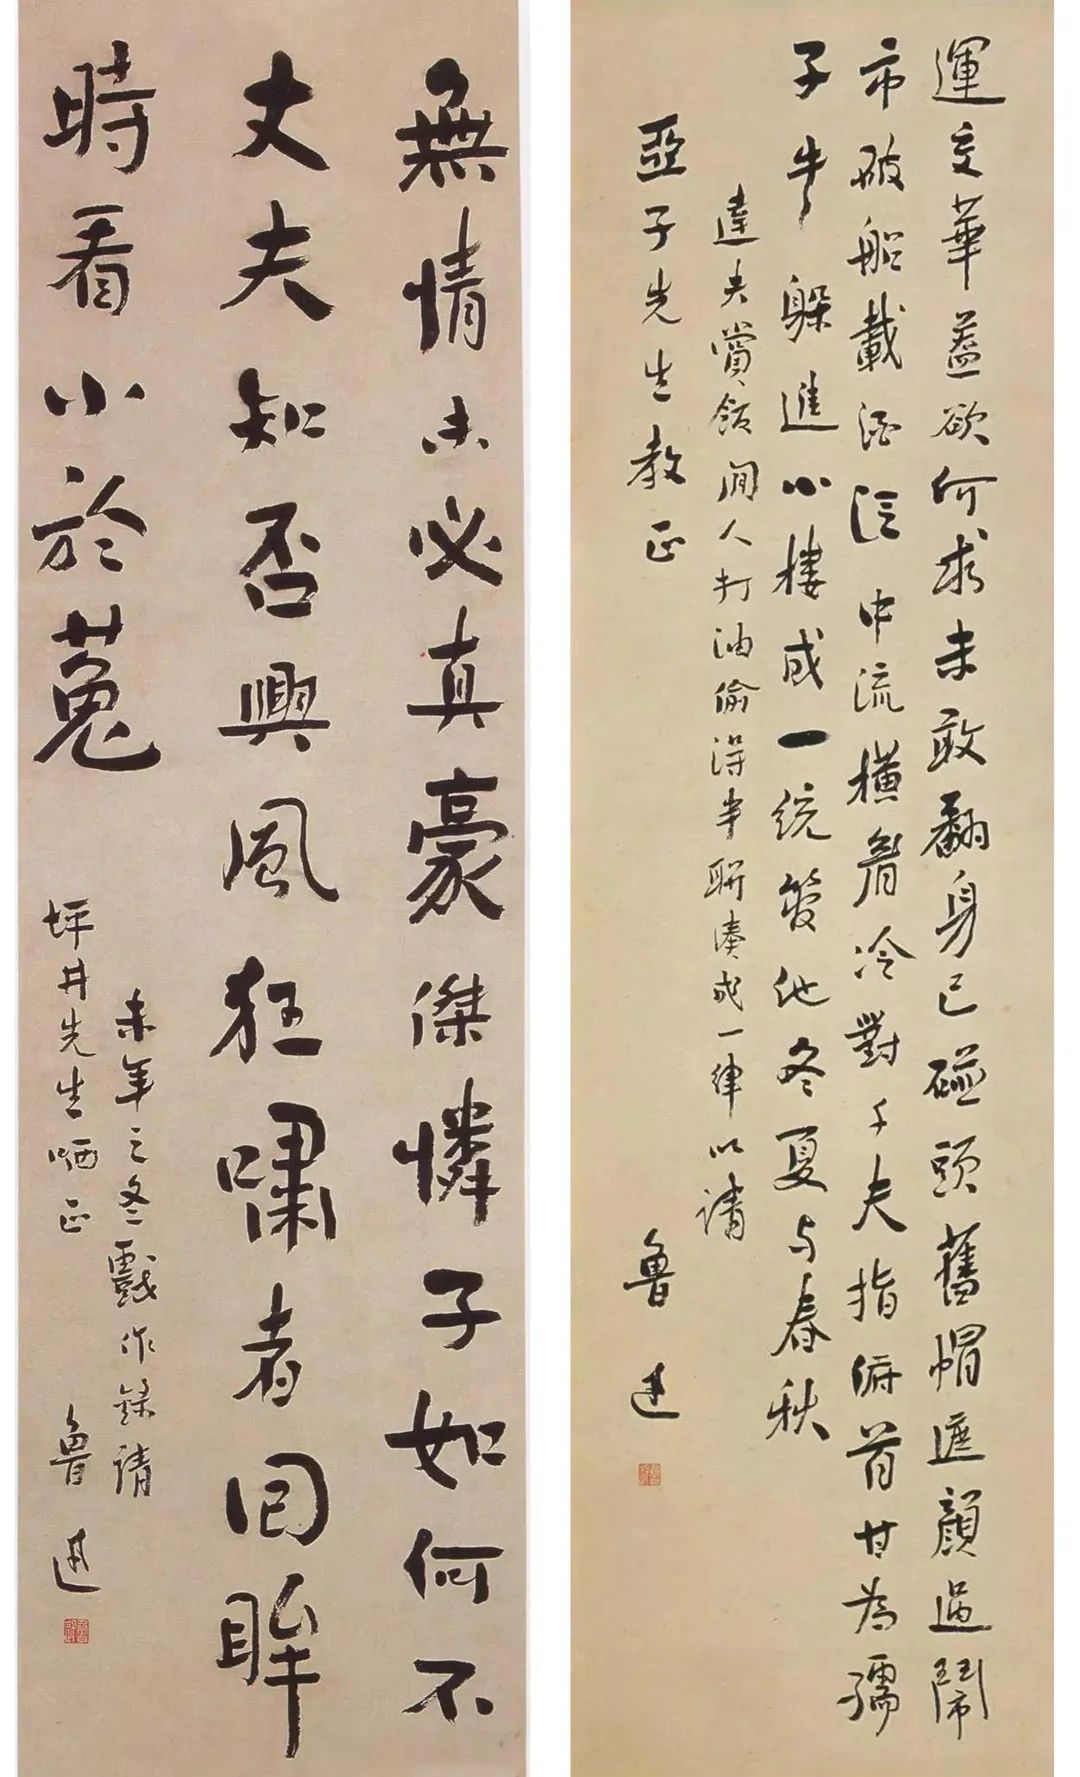 運交華蓋欲何求未敢翻身已碰頭舊帽遮顏過鬧
市破船載酒泛中流橫眉冷對千夫指俯首甘為孺
子牛躲進小樓成一統管他冬夏与春秋
達夫賞飯閒人打油偷得半聯湊成一律以請
亞子先生教正
魯迅
無情未必真豪傑憐子如何不
丈夫知否興風狂嘯者回眸
時看小於菟
未年之冬戲作錄請
坪井先生哂正
魯迅